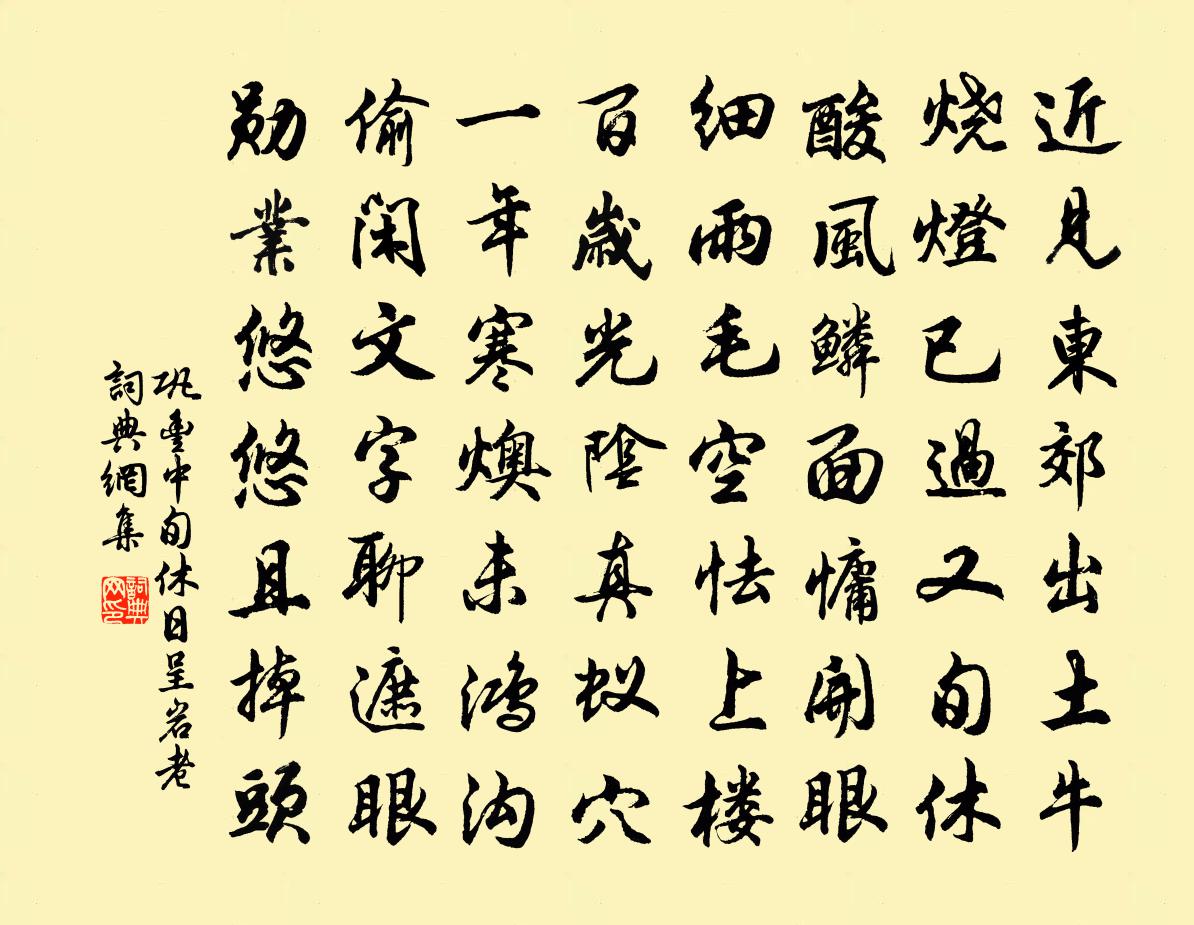 近见東郊出土牛
烧燈已過又旬休
酸風鳞面慵開眼
细雨毛空怯上楼
百歲光陰真蚁穴
一年寒燠未鸿沟
偷闲文字聊遮眼
勋業悠悠且掉頭
巩豐中旬休日呈岩老
詞典網集